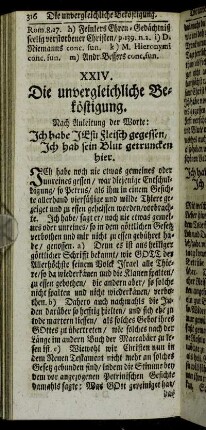 316 Die unvergleichliche Beköstigung.
Rom.8.27. h) Feinlers Ehren-Gedächtniß
seelig verstorbener Christen/ p.139. n.1. i) D.
Niemanns conc. fun. k) M. Hieronymi
conc. fun. m) Andr. Bessers conc. fun.
XXIV.
Die unvergleichliche Be-
köstigung.
Nach Anleitung der Worte:
Ich habe JEsu Fleisch gegessen,
Ich hab sein Blut getruncken
hier.
ICh habe noch nie etwas gemeines oder
unreines gessen/ war diejenige Entschul-
digung/ so Petrus/ als ihm in einem Gesich-
te allerhand vierfüßige und wilde Thiere ge-
zeiget und zu essen geheissen worden/ vorbrach-
te. Ich habe/ sagt er/ noch nie etwas gemei-
nes oder unreines/ so in dem göttlichen Gesetz
verbothen und mir nicht zu essen gebühret ha-
be/ genossen. a) Denn es ist aus heiliger
göttlicher Schrift bekannt/ wie GOTT der
Allerhöchste seinem Volck Israel alle Thie-
re/ so da wiederkäuen und die Klauen spalten/
zu essen gebothen/ die andern aber/ so solche
nicht spalten und nicht wiederkäuen/ verbo-
then. b) Dahero auch nachmahls die Ju-
den darüber so hefftig hielten/ und sich ehe zu
tode martern liessen/ als solches Geboth ihres
GOttes zu übertreten/ wie solches nach der
Länge im andern Buch der Maccabäer zu le-
sen ist. c) Wiewohl wir Christen nun in
dem Neuen Testament nicht mehr an solches
Gesetz gebunden sind/ indem die Stimme bey
dem vor angezogenen Petrinischen Gesichte
damahls sagte: Was GOtt gereiniget hat/
das